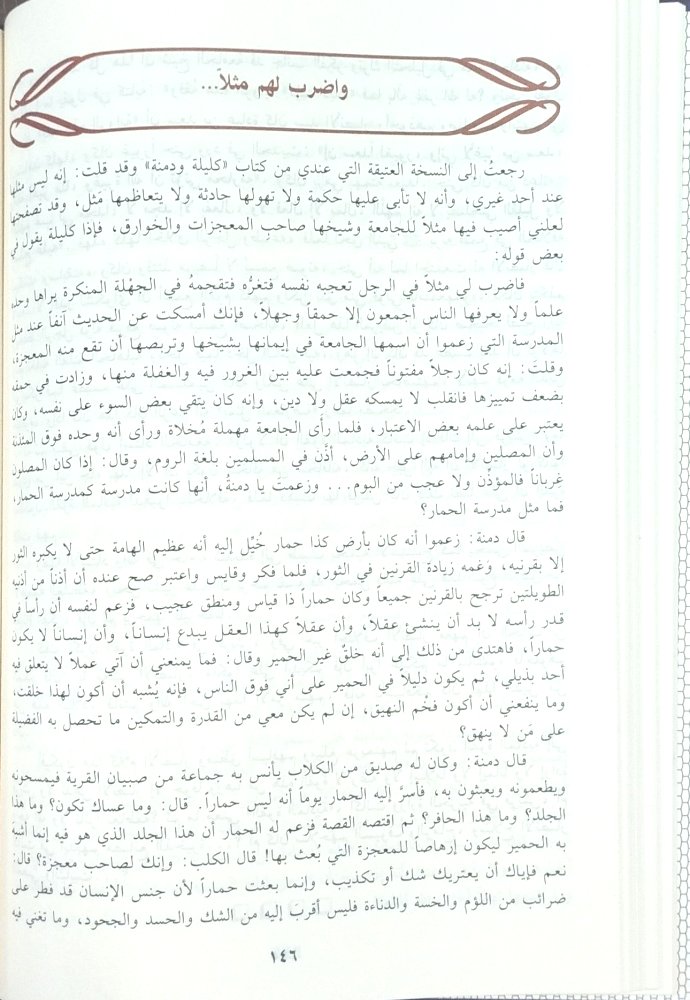 واضرب لهم مثلاً...
رجعتُ إلى النسخة العتيقة التي عندي مِن كتاب «كليلة ودمنة» وقد قلت: إنه ليس مثلها
عند أحد غيري، وأنه لا تأبى عليها حكمة ولا تهولها حادثة ولا يتعاظمها مَثل، وقد تصفحتها
لعلني أصيب فيها مثلاً للجامعة وشيخها صاحب المعجزات والخوارق، فإذا كليلة يقول في
بعض قوله:
فاضرب لي مثلاً في الرجل تعجبه نفسه فتغرُّه فتقحِمهُ في الجهْلة المنكرة يراها وحده
علماً ولا يعرفها الناس أجمعون إلا حمقاً وجهلاً، فإنك أمسكت عن الحديث آنفاً عند مثل
المدرسة التي زعموا أن اسمها الجامعة في إيمانها بشيخها وتربصها أن تقع منه المعجزة،
وقلتَ: إنه كان رجلاً مفتوناً فجمعت عليه بين الغرور فيه والغفلة منها، وزادت في حمقه
بضعف تمييزها فانقلب لا يمسكه عقل ولا دين، وإنه كان يتقي بعض السوء على نفسه، وكان
يعتبر على علمه بعض الاعتبار، فلما رأى الجامعة مهملة مُخلاة ورأى أنه وحده فوق المئذنة
وأن المصلين وإمامهم على الأرض، أذَّن في المسلمين بلغة الروم، وقال: إذا كان المصلون
غرباناً فالمؤذِّن ولا عجب من البوم... وزعمتَ يا دمنةُ، أنها كانت مدرسة كمدرسة الحمار،
فما مثل مدرسة الحمار؟
قال دمنة: زعموا أنه كان بأرض كذا حمار خُيِّل إليه أنه عظيم الهامة حتى لا يكبره الثور
إلا بقرنيه، وَغمه زيادة القرنين في الثور، فلما فكر وقايس واعتبر صح عنده أن أذناً من أذنيه
الطويلتين ترجح بالقرنين جميعاً وكان حماراً ذا قياس ومنطق عجيب، فزعم لنفسه أن رأساً في
قدر رأسه لا بد أن ينشئ عقلاً، وأن عقلاً كهذا العقل يبدع إنساناً، وأن إنساناً لا يكون
حماراً، فاهتدى من ذلك إلى أنه خلقٌ غير الحمير وقال: فما يمنعني أن آتي عملاً لا يتعلق فيه
أحد بذيلي، ثم يكون دليلاً في الحمير على أني فوق الناس، فإنه يُشبه أن أكون لهذا خلقت،
وما ينفعني أن أكون فخْم النهيق، إن لم يكن معي من القدرة والتمكين ما تحصل به الفضيلة
على مَن لا ينهق؟
قال دمنة: وكان له صديق من الكلاب يأنس به جماعة من صبيان القرية فيمسحونه
ويطعمونه ويعبثون به، فأسرَّ إليه الحمار يوماً أنه ليس حماراً. قال: وما عساك تكون؟ وما هذا
الجلد؟ وما هذا الحافر؟ ثم اقتصه القصة فزعم له الحمار أن هذا الجلد الذي هو فيه إنما أشبه
به الحمير ليكون إرهاصاً للمعجزة التي بُعث بها! قال الكلب: وإنك لصاحب معجزة؟ قال:
نعم فإياك أن يعتريك شك أو تكذيب، وإنما بعثت حماراً لأن جنس الإنسان قد فطر على
ضرائب من اللؤم والخسة والدناءة فليس أقربَ إليه من الشك والحسد والجحود، وما تغني فيه
١٤٦